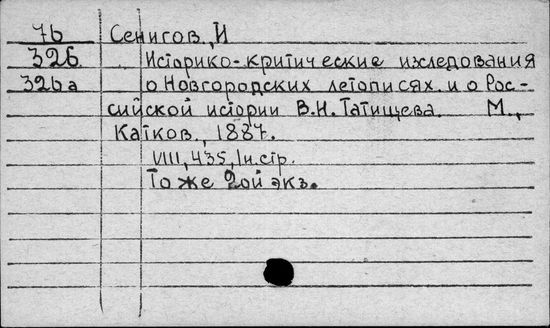 7б Сенигов, И
32б Историко-критические изследования
32ба о Новгородских летописях и о Рос-
сийской истории В.Н. Татищева. М.,
Катков, 1887.
VIII, 435, 1 н.стр.
То же 2ой экз.